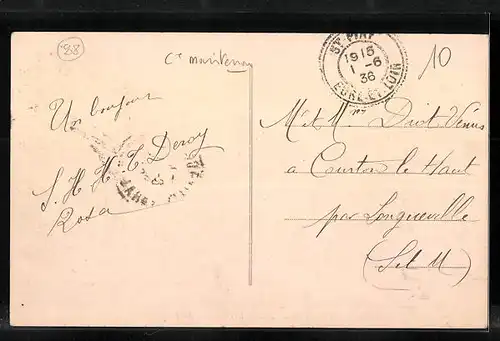 88
Ct Maintenon
10
ST PIAT
1915
1 -6
36
EURE-ET-LOIR
Un bonjour
T. Deroy
S. H. H.
Rosa
Mr et Mme
à Courton le Haut
par Longueville
(S et M)